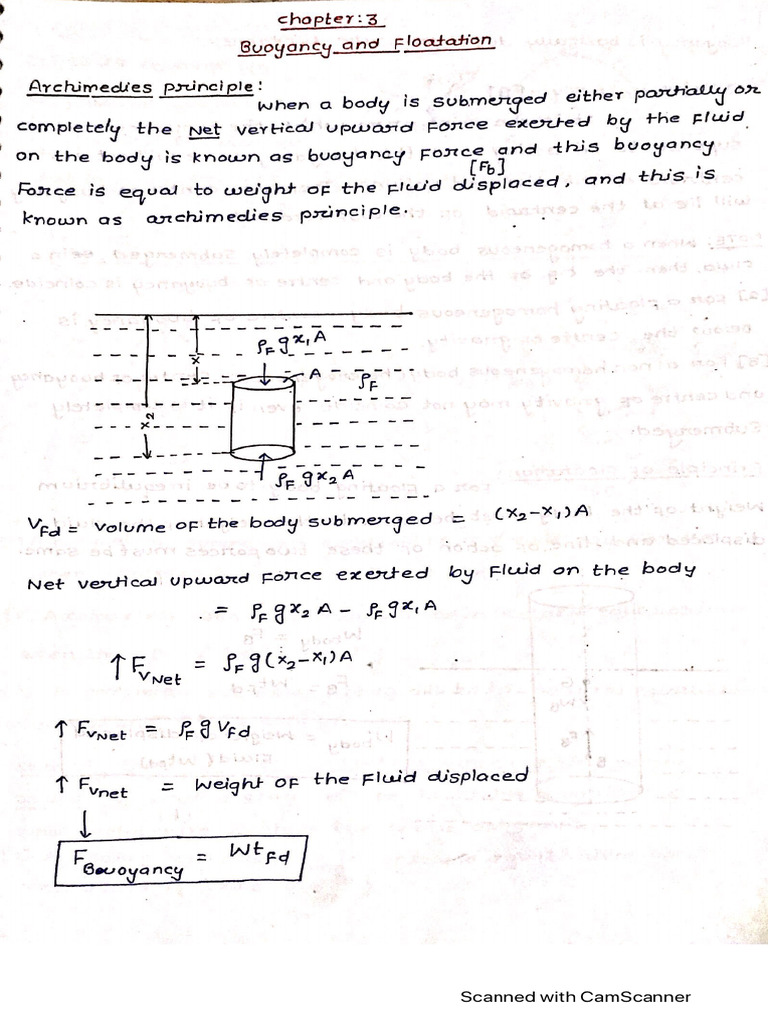 Chapter:3
Buoyancy and Floatation
Archimedies principle:
When a body is submerged either partially or
completely the Net vertical upward Force exerted by the Fluid
on the body is known as buoyancy Force and this buoyancy
[Fb]
Force is equal to weight of the Fluid displaced, and this is
known as archimedies principle.
ρF g x1 A
x
A
ρF
x2
ρF g x2 A
VFd = volume of the body submerged = (x2-x1)A
Net vertical upward Force exerted by Fluid on the body
= ρF g x2 A - ρF g x1 A
↑ FVNet = ρF g (x2-x1)A
↑ FVNet = ρF g VFd
↑ FVnet = Weight of the Fluid displaced
↓
FBouoyancy = WtFd
Scanned with CamScanner